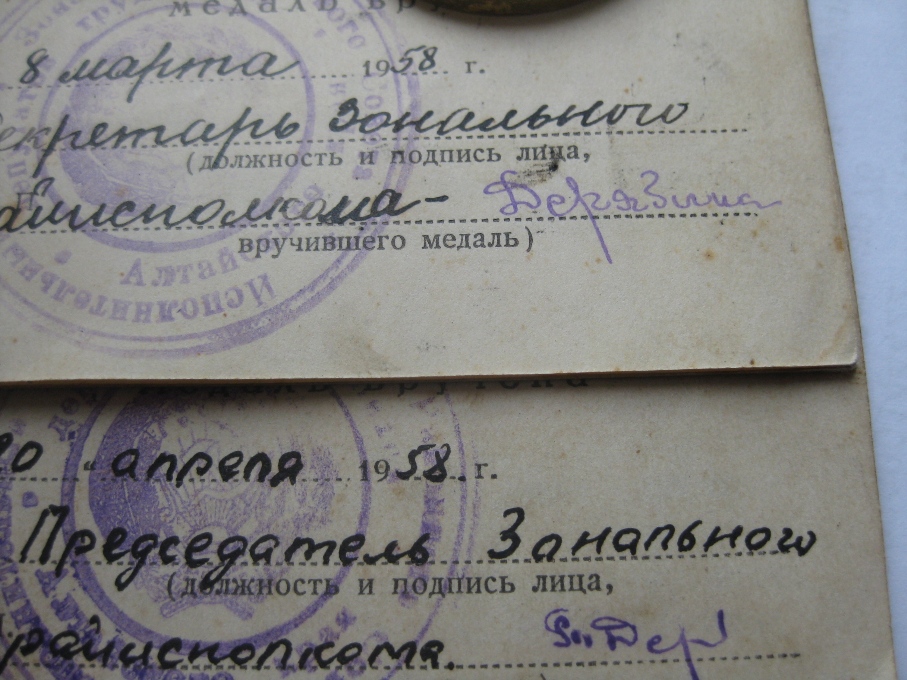 медаль
8 марта 1958 г.
Секретарь Зонального
(должность и подпись лица,
райисполкома - Дерябина
вручившего медаль)
Алтайс
Исполнительный
Медаль вручена
20 " апреля 1958 г.
Председатель Зонального
(должность и подпись лица,
райисполкома. Дер